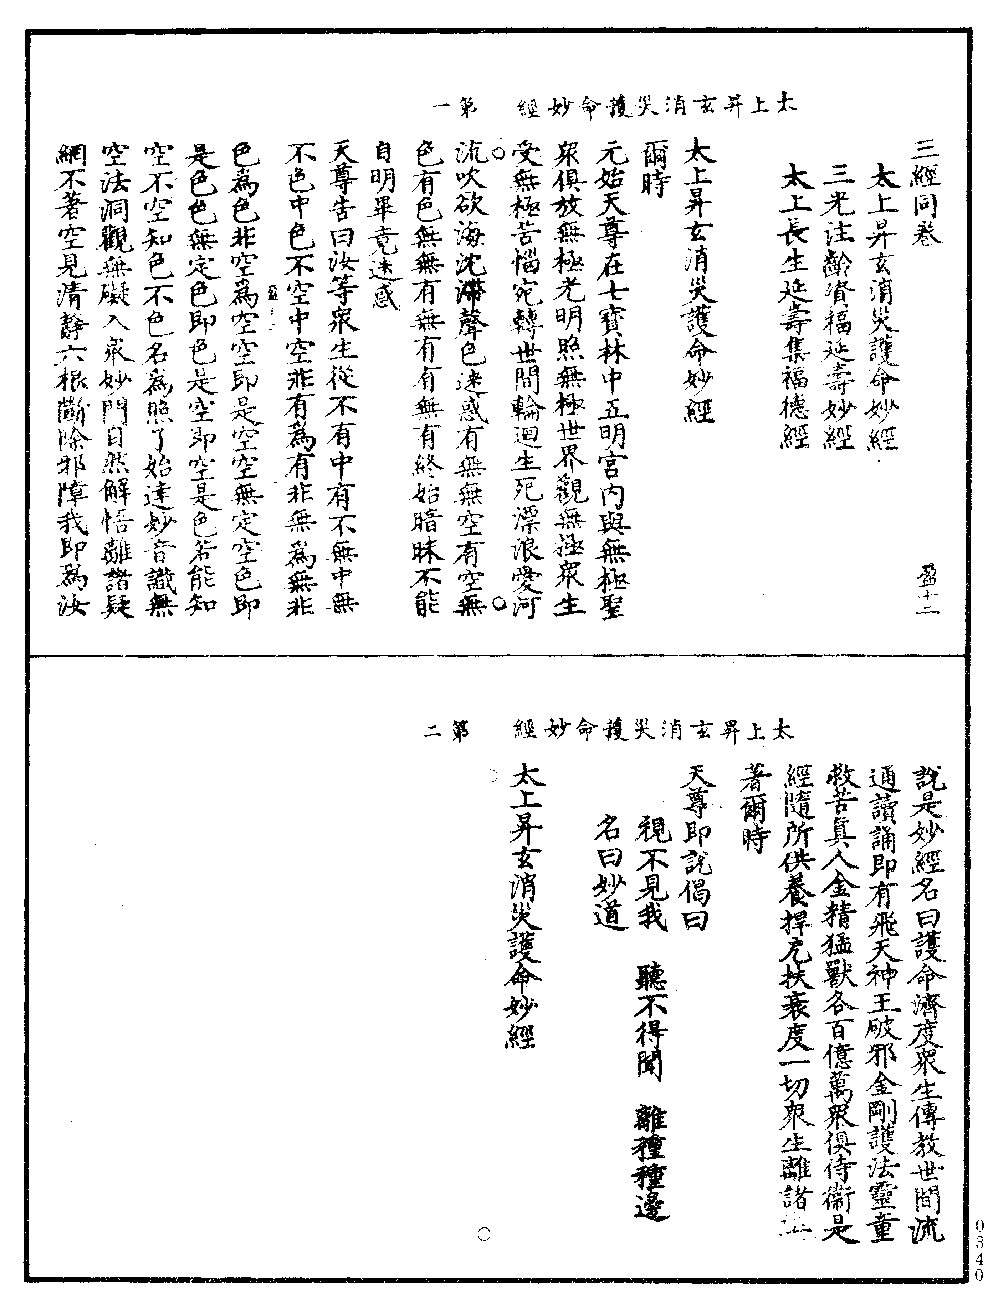 太上昇玄消災護命妙經　第一
三經同卷　盈十二
太上昇玄消災護命妙經
三光注齡資福延壽妙經
太上長生延壽集福德經
太上昇玄消災護命妙經
爾時
元始天尊在七寶林中五明宮內與無極聖
衆俱放無極光明照無極世界觀無極衆生
受無極苦惱宛轉世間輪迴生死漂浪愛河
流吹欲海沈滯聲色迷惑有無無空有空無
色有色無無有無有有無有終始暗昧不能
自明畢竟迷惑
天尊告曰汝等衆生從不有中有不無中無
不色中色不空中空非有爲有非無爲無非
色爲色非空爲空空即是空空無定空色即
是色色無定色即色是空即空是色若能知
空不空知色不色名爲照了始達妙音識無
空法洞觀無礙入衆妙門自然解悟離諸疑
網不著空見清靜六根斷除邪障我即爲汝
太上昇玄消災護命妙經　第二
說是妙經名曰護命濟度衆生傳教世間流
通讀誦即有飛天神王破邪金剛護法靈童
救苦真人金精猛獸各百億萬衆俱侍衞是
經隨所供養捍厄扶衰度一切衆生離諸
著爾時
天尊即說偈曰
視不見我　聽不得聞　離種種邊
名曰妙道
太上昇玄消災護命妙經
0340